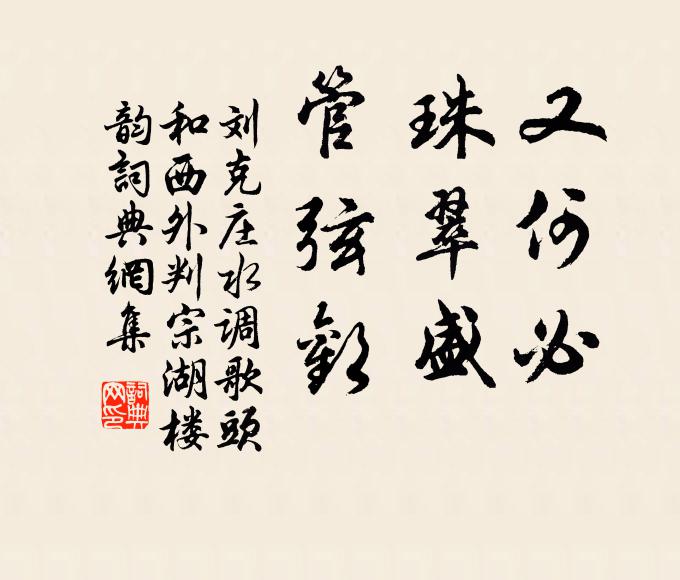 又何必
珠翠盛
管弦歡
刘克庄水调歌頭
和西外判宗湖楼
韵詞典網集
詞典
网印